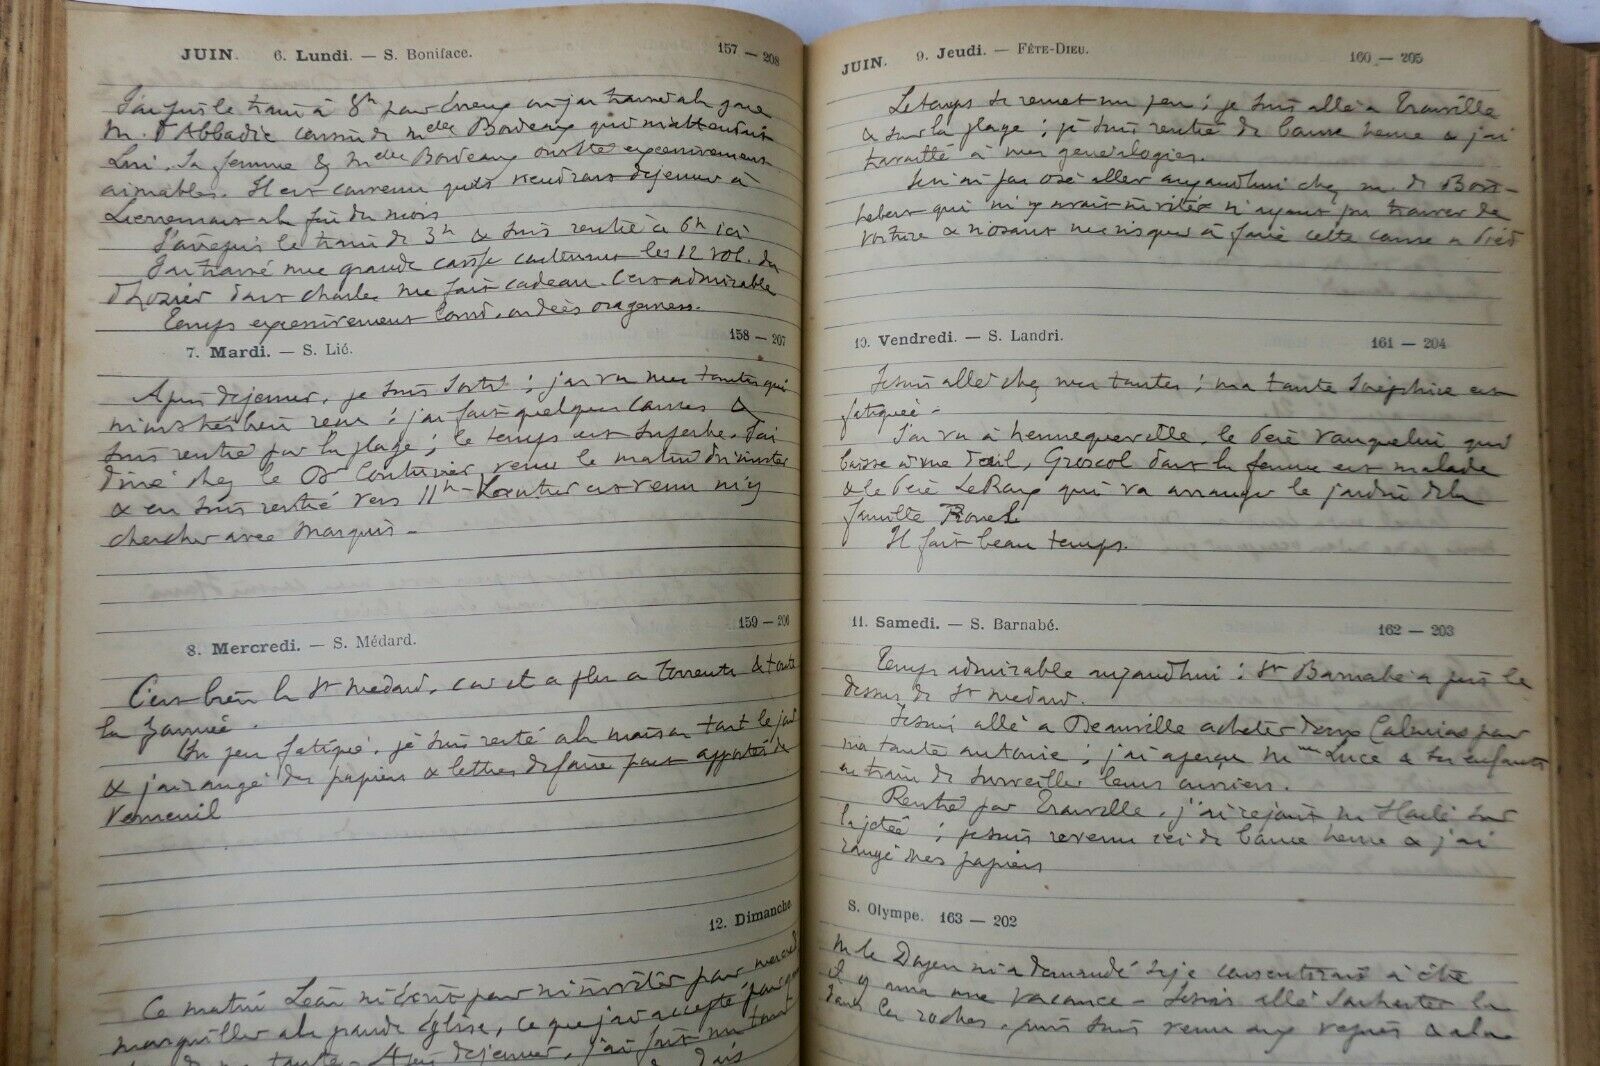 JUIN. 6. Lundi. — S. Boniface. 157 — 208
J'ai pris le train à 8h pour où j'ai trouvé à la gare
M. d'Abbadie cousin de Mdes Bordeaux qui m'attendait
Lui, sa femme & Mdes Bordeaux ont été excessivement
aimables. Il est convenu qu'ils viendront déjeuner à
à la fin du mois
le train de 3h & suis rentré à 6h ici
J'ai trouvé une grande caisse contenant les 12 vol. du
d'Hozier dont Charles me fait cadeau. C'est admirable
Temps excessivement lourd, ondées orageuses.
7. Mardi. — S. Lié. 158 — 207
Après déjeuner, je suis sorti ; j'ai vu mes tantes qui
m'ont très bien reçu ; j'ai fait quelques courses &
suis rentré par la plage ; le temps est superbe. J'ai
dîné chez le Dr Couturier, venu le matin m'inviter
& en suis rentré vers 11h — est venu m'y
chercher avec Marquis —
8. Mercredi. — S. Médard. 159 — 206
C'est bien la St Médard, car il a plu à torrents & toute
la journée.
Un peu fatigué, je suis resté à la maison tout le jour
& j'ai rangé des papiers & lettres de faire part apportés de
Verneuil
12. Dimanche
Ce matin Léon m'écrit pour m'inviter pour mercredi
marguiller à la grande Église, ce que j'ai accepté pour
tante. Après déjeuner, j'ai fait un tour
JUIN. 9. Jeudi. — FÊTE-DIEU. 160 — 205
Le temps se remet un peu ; je suis allé à Trouville
& sur la plage ; je suis rentré de bonne heure & j'ai
travaillé à mes généalogies.
Je n'ai pas osé aller aujourd'hui chez M. de Bois-
hebert qui m'y avait invité n'ayant pu trouver de
voiture & n'osant me risquer à faire cette course à pied
10. Vendredi. — S. Landri. 161 — 204
Je suis allé chez mes tantes ; ma tante Joséphine est
fatiguée —
J'ai vu à Hennequeville, le père Vauquelin qui
baisse à vue d'œil, Groscol dont la femme est malade
& le père qui va arranger le jardin de la
famille
Il fait beau temps.
11. Samedi. — S. Barnabé. 162 — 203
Temps admirable aujourd'hui ; St Barnabé a pris le
dessus de St Médard.
Je suis allé à Deauville acheter deux pour
ma tante Antonie ; j'ai aperçu Mme Luce & ses enfants
en train de surveiller leurs ouvriers.
Rentré par Trouville, j'ai rejoint M. sur
la jetée ; je suis revenu ici de bonne heure & j'ai
rangé mes papiers
S. Olympe. 163 — 202
M. le Doyen m'a demandé si je consentirais à être
il y aura une vacance — Je suis allé souhaiter la
dans les roches, puis suis venu aux vêpres & à la